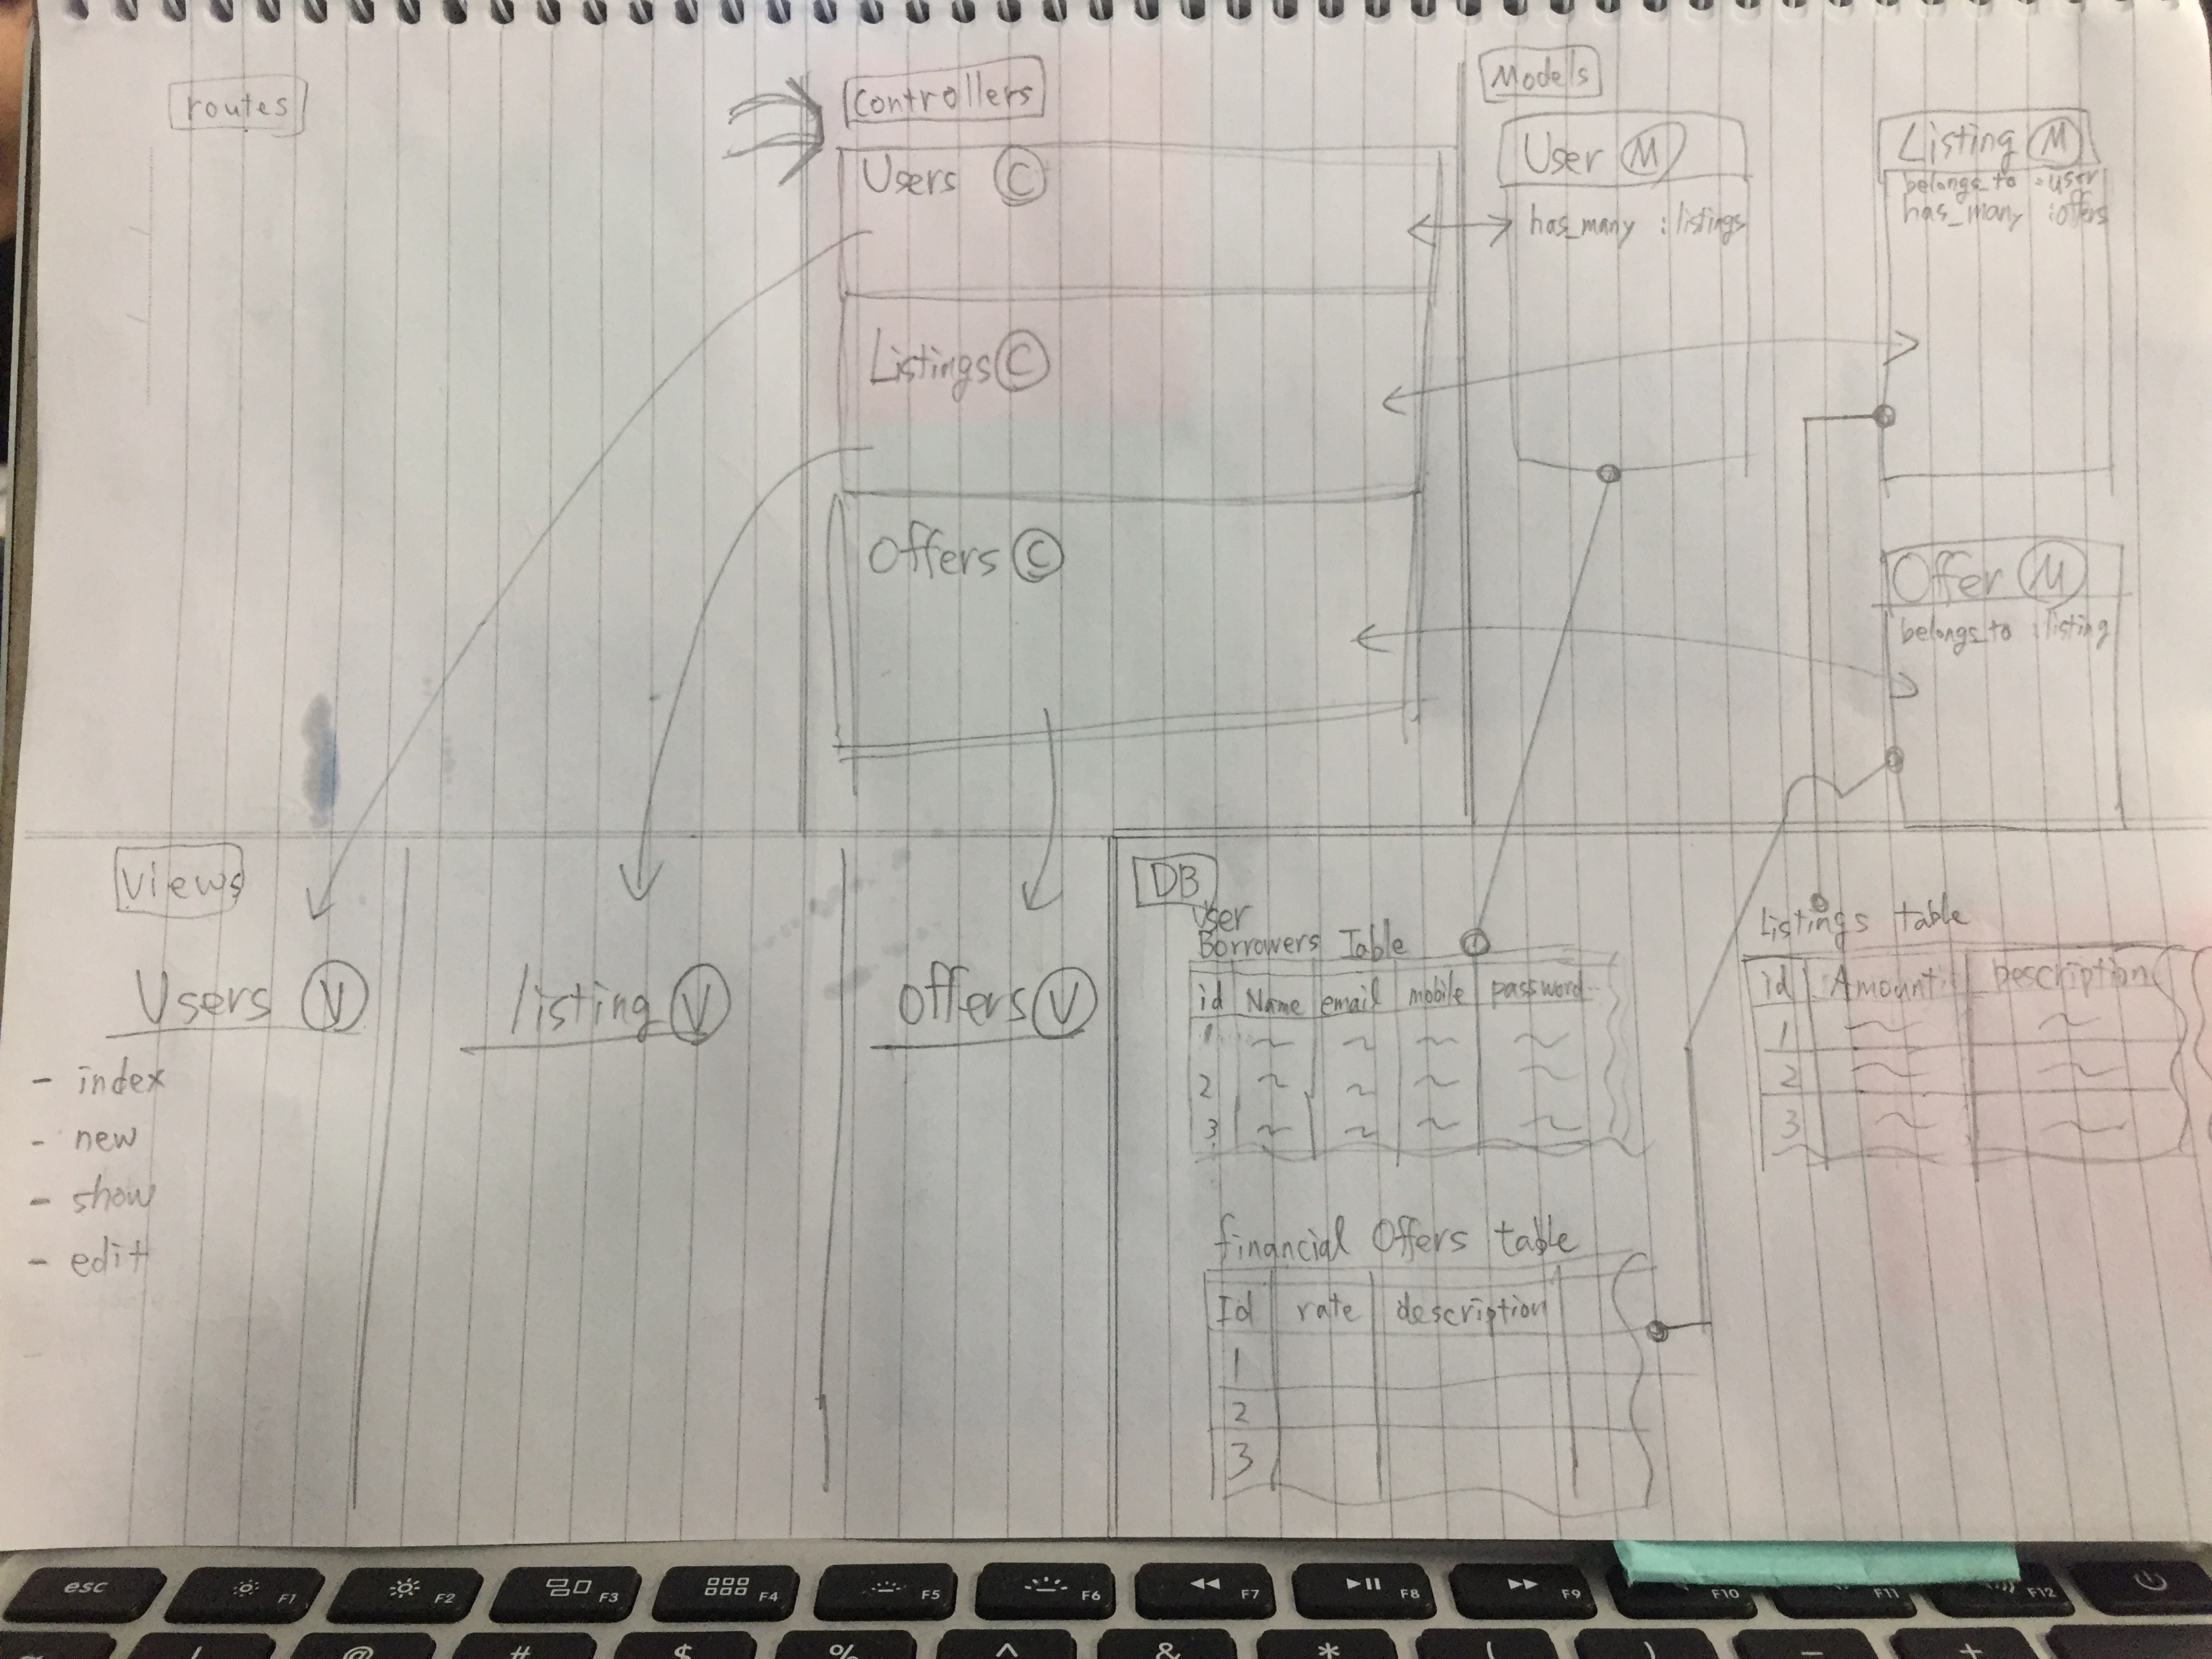 routes
Controllers
Users C
Listings C
Offers C
Models
User M
has_many :listings
Listing M
belongs_to :user
has_many :offers
Offer M
belongs_to :listing
Views
Users V
- index
- new
- show
- edit
listing V
offers V
DB
User
Borrowers Table
id Name email mobile password
1
2
3
Listings table
id Amount Description
1
2
3
financial Offers table
Id rate description
1
2
3
esc F1 F2 F3 F4 F5 F6 F7 F8 F9 F10 F11 F12
! @ # $ % ^ & * ( ) − +